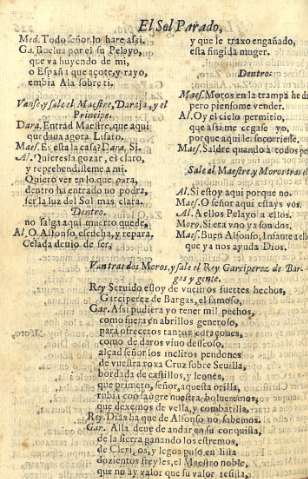 El Sol Parado,
Med. Todo señor lo hare assi.
Ga. Buelua por el su Pelayo,
que va huyendo de mi,
o España que açote, y rayo,
embia Ala sobre ti.
Vanse y sale el Maestre, Daraja, y el
Principe.
Dara. Entrad Maestre, que aqui
queda agora Lisato.
Maes. Es esta la casa? Dara. Si.
Al. Quieresla gozar, el claro,
y reprehendisteme a mi.
Quiero ver en lo que para,
dentro ha entrado no podra,
ser la luz del Sol mas clara.
Dentro.
no salga aqui muerto quede,
Al. O Alfonso, escucha, y repara,
Celada deuio de ser,
y que le traxo engañado,
esta fingida muger.
Dentro:
Maes. Moros en la trampa he dado
pero pienso me vender.
Al. Oy el cielo permitio,
que assi me cegasse yo,
porque aqui le socorriesse.
Maes. Saldre quando a todos pese
Sale el Maestre, y Moros tras el
Al. Si estoy aqui porque no.
Maes. O señor aqui estays vos.
Al. A ellos Pelayo a ellos.
Moro. Si era vno ya son dos,
Maes. Buen Alfonso, Infame a ellos
que ya nos ayuda Dios.
Van tras dos Moros, y sale el Rey Garciperez de Bargas
y gente.
Rey Seruido estoy de vuestros fuertes hechos,
Garciperez de Bargas, el famoso,
Gar. Assi pudiera yo tener mil pechos,
como fuera en abrillos generoso,
para ofreceros tantos coraçones,
como de daros viuo desseoso,
alçad señor los inclitos pendones
de vuestra roxa Cruz sobre Seuilla,
bordada de castillos, y leones,
que primero, señor, aquesta orilla,
rubia con sangre nuestra bolueremos,
que dexemos de vella, y combatilla,
Rey. Dias ha que de Alfonso no sabemos.
Gar. Alla deue de andar en su conquista,
de la sierra ganando los estremos,
de Clerigos, y legos puso en lista
dozientos freyles, el Maestro noble,
que no ay valor que su valor resista,